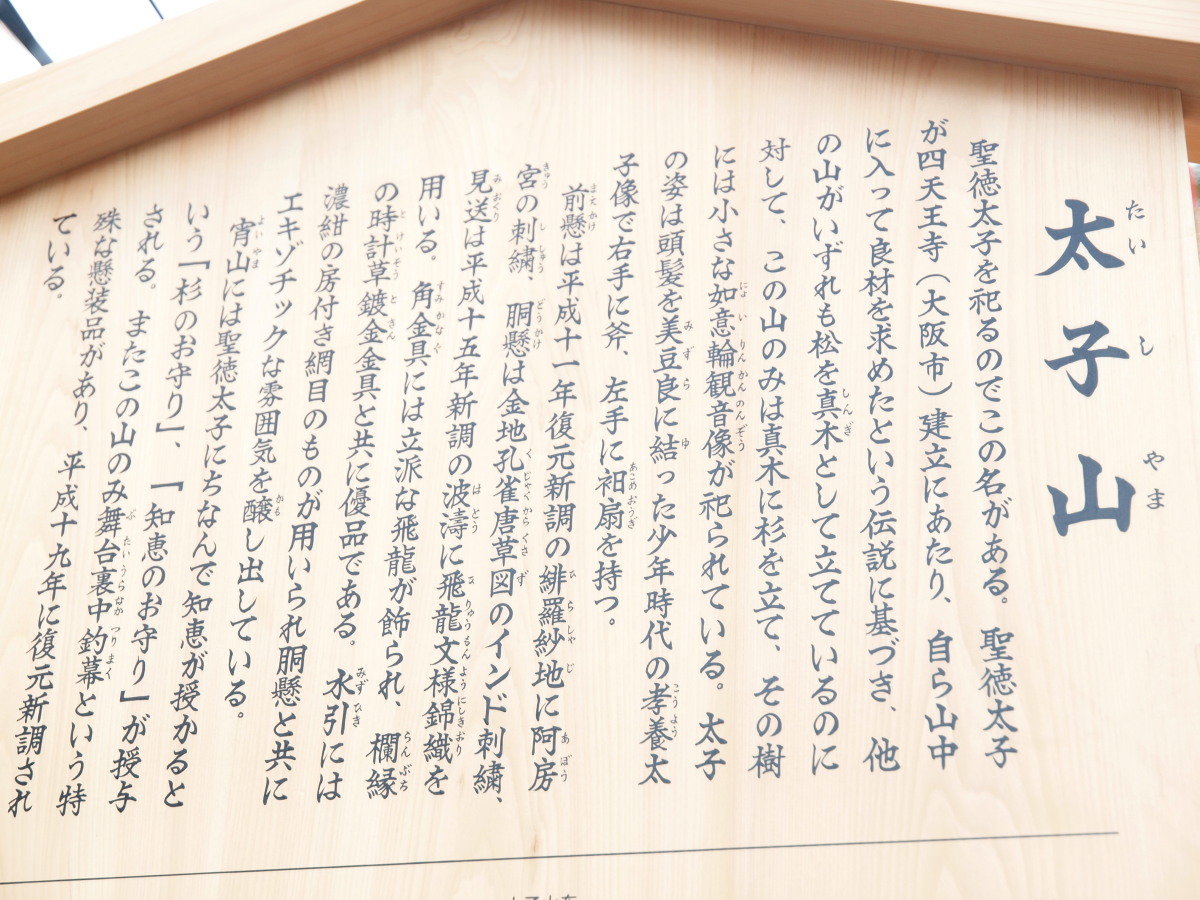 太子山
聖徳太子を祀るのでこの名がある。聖徳太子
が四天王寺(大阪市)建立にあたり、自ら山中
に入って良材を求めたという伝説に基づき、他
の山がいずれも松を真木として立てているのに
対して、この山のみは真木に杉を立て、その樹
には小さな如意輪観音像が祀られている。太子
の姿は頭髪を美豆良に結った少年時代の孝養太
子像で右手に斧、左手に衵扇を持つ。
前懸は平成十一年復元新調の緋羅紗地に阿房
宮の刺繍、胴懸は金地孔雀唐草図のインド刺繍、
見送は平成十五年新調の波濤に飛龍文様錦織を
用いる。角金具には立派な飛龍が飾られ、欄縁
の時計草鍍金金具と共に優品である。水引には
濃紺の房付き網目のものが用いられ胴懸と共に
エキゾチックな雰囲気を醸し出している。
宵山には聖徳太子にちなんで知恵が授かると
いう「杉のお守り」、「知恵のお守り」が授与
される。またこの山のみ舞台裏中釣幕という特
殊な懸装品があり、平成十九年に復元新調され
ている。